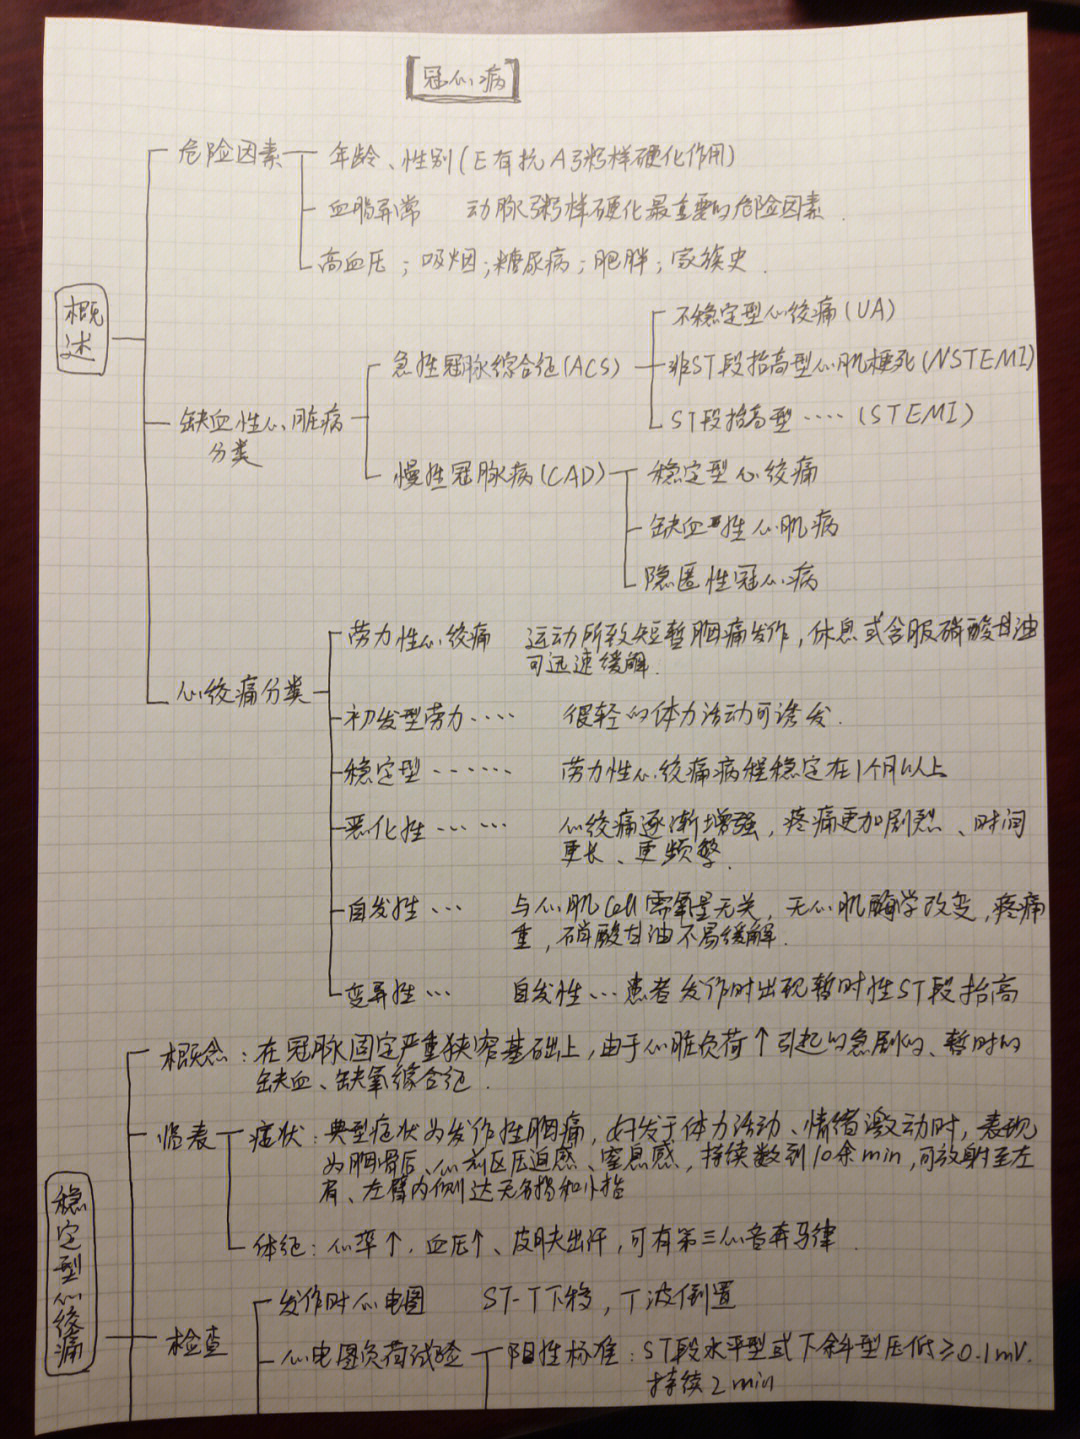 冠心病
危险因素 年龄、性别(E有抗A粥样硬化作用)
血脂异常 动脉粥样硬化最重要的危险因素.
高血压;吸烟;糖尿病;肥胖;家族史.
概述
不稳定型心绞痛(UA)
急性冠脉综合征(ACS) 非ST段抬高型心肌梗死(NSTEMI)
缺血性心脏病 ST段抬高型····(STEMI)
分类
慢性冠脉病(CAD) 稳定型心绞痛
缺血性心肌病
隐匿性冠心病
劳力性心绞痛 运动所致短暂胸痛发作,休息或含服硝酸甘油
可迅速缓解.
心绞痛分类
初发型劳力···· 很轻的体力活动可诱发.
稳定型······· 劳力性心绞痛病程稳定在1个月以上
恶化性······ 心绞痛逐渐增强,疼痛更加剧烈、时间
更长、更频繁.
自发性··· 与心肌cell需氧量无关,无心肌酶学改变,疼痛
重,硝酸甘油不易缓解.
变异性··· 自发性···患者发作时出现暂时性ST段抬高
稳定型心绞痛
概念:在冠脉固定严重狭窄基础上,由于心脏负荷↑引起的急剧的、暂时的
缺血、缺氧综合征.
临表 症状:典型症状为发作性胸痛,好发于体力活动、情绪激动时,表现
为胸骨后、心前区压迫感、窒息感,持续数到10余min,可放射至左
肩、左臂内侧达无名指和小指
体征:心率↑,血压↑、皮肤出汗,可有第三心音奔马律.
检查 发作时心电图 ST-T下移,T波倒置
心电图负荷试验 阳性标准:ST段水平型或下斜型压低≥0.1mV.
持续2min